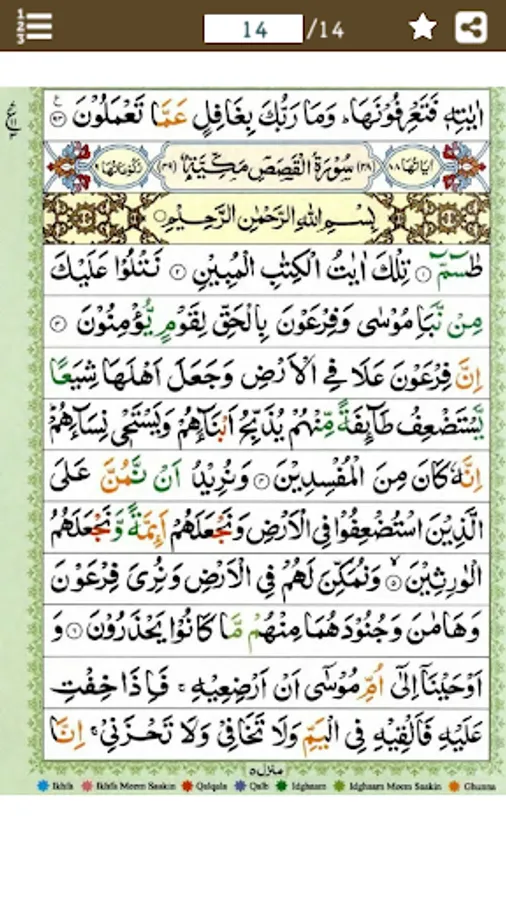 14 /14
اٰيٰتِهٖ فَتَعْرِفُوْنَهَا ؕ وَمَا رَبُّكَ بِغَافِلٍ عَمَّا تَعْمَلُوْنَ ۝۹۳
اٰيَاتُهَا ۸۸ (۲۸) سُوْرَةُ الْقَصَصِ مَكِّيَّةٌ (۴۹) رُكُوْعَاتُهَا ۹
بِسْمِ اللّٰهِ الرَّحْمٰنِ الرَّحِيْمِ
طٰسٓمّٓ ۝۱ تِلْكَ اٰيٰتُ الْكِتٰبِ الْمُبِيْنِ ۝۲ نَتْلُوْا عَلَيْكَ
مِنْ نَّبَاِ مُوْسٰى وَفِرْعَوْنَ بِالْحَقِّ لِقَوْمٍ يُّؤْمِنُوْنَ ۝۳
اِنَّ فِرْعَوْنَ عَلَا فِي الْاَرْضِ وَجَعَلَ اَهْلَهَا شِيَعًا
يَّسْتَضْعِفُ طَآئِفَةً مِّنْهُمْ يُذَبِّحُ اَبْنَآءَهُمْ وَيَسْتَحْيٖ نِسَآءَهُمْ ؕ
اِنَّهٗ كَانَ مِنَ الْمُفْسِدِيْنَ ۝۴ وَنُرِيْدُ اَنْ نَّمُنَّ عَلَى
الَّذِيْنَ اسْتُضْعِفُوْا فِي الْاَرْضِ وَنَجْعَلَهُمْ اَئِمَّةً وَّنَجْعَلَهُمُ
الْوٰرِثِيْنَ ۝۵ وَنُمَكِّنَ لَهُمْ فِي الْاَرْضِ وَنُرِيَ فِرْعَوْنَ
وَهَامٰنَ وَجُنُوْدَهُمَا مِنْهُمْ مَّا كَانُوْا يَحْذَرُوْنَ ۝۶ وَ
اَوْحَيْنَآ اِلٰٓى اُمِّ مُوْسٰٓى اَنْ اَرْضِعِيْهِ ۚ فَاِذَا خِفْتِ
عَلَيْهِ فَاَلْقِيْهِ فِي الْيَمِّ وَلَا تَخَافِيْ وَلَا تَحْزَنِيْ ۚ اِنَّا
منزل ۵
Ikhfa Ikhfa Meem Saakin Qalqala Qalb Idghaam Idghaam Meem Saakin Ghunna